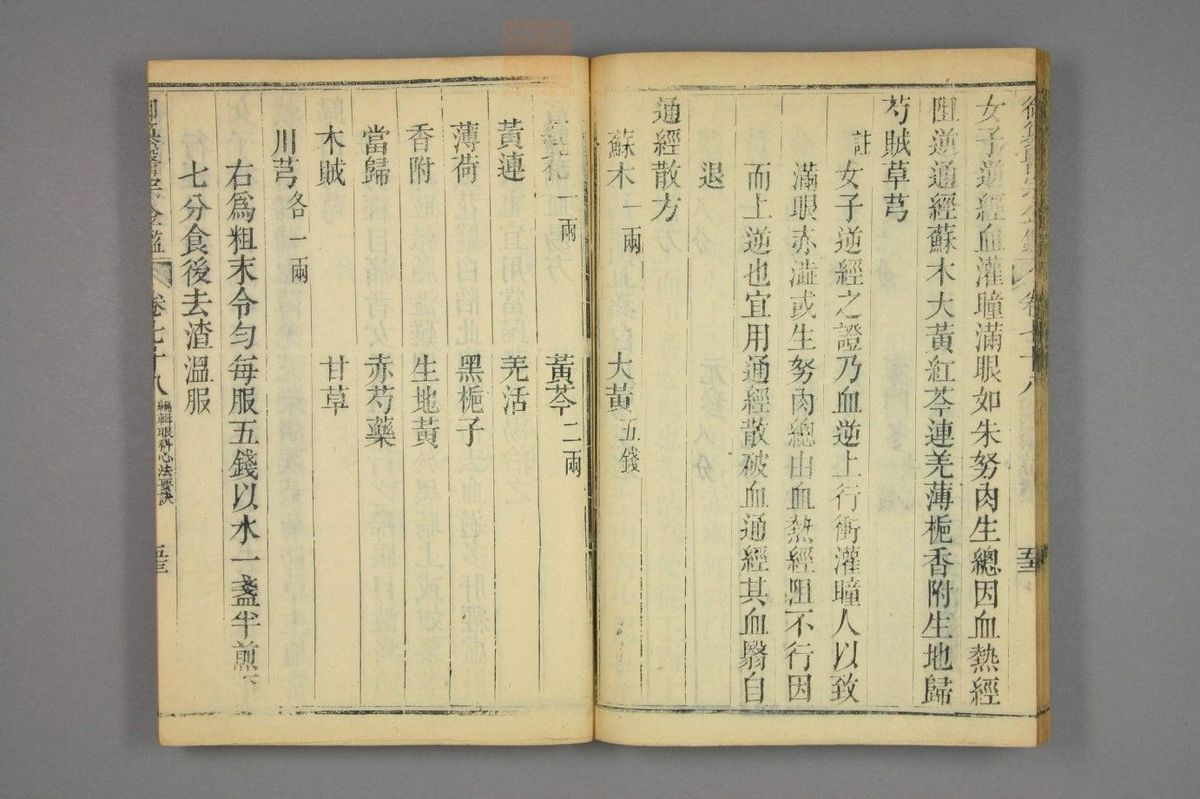 卷七十八
五十三
女子逆經血灌瞳滿眼如朱努肉生總因血熱經
阻逆通經蘇木大黃紅芩連羌薄梔香附生地歸
芍賊草芎
註女子逆經之證乃血逆上行衝灌瞳人以致
滿眼赤澁或生努肉總由血熱經阻不行因
而上逆也宜用通經散破血通經其血翳自
退
通經散方
蘇木一兩 大黃五錢
一兩 黃芩二兩
黃連 羌活
薄荷 黑梔子
香附 生地黃
當歸 赤芍藥
木賊 甘草
川芎各一兩
右為粗末令勻每服五錢以水一盞半煎
七分食後去渣溫服
御纂醫宗金鑑 卷七十八 編輯眼科心法要訣 五十三